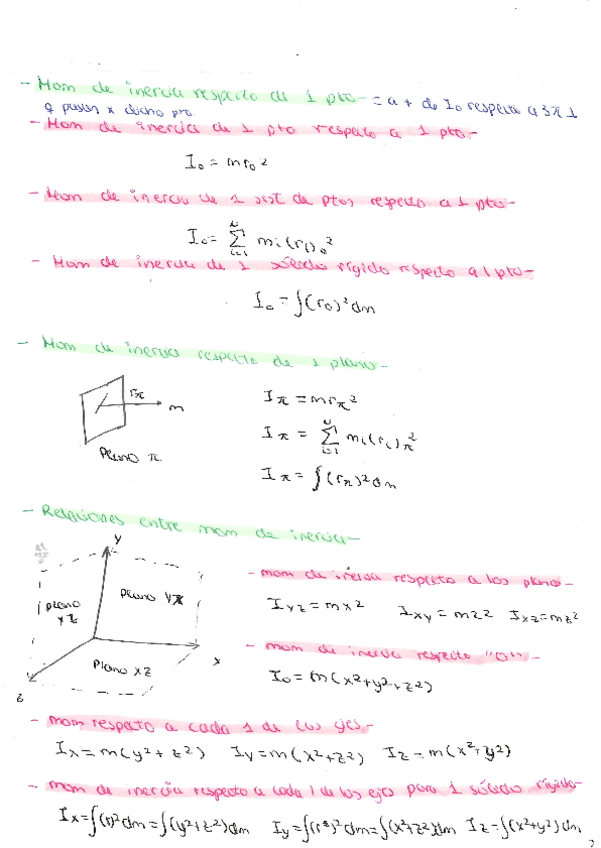 - Mom de inercia respecto de 1 pto - = a + de Io respecto a 3 π ⊥
q pasan x dicho pto
- Mom de inercia de 1 pto respecto a 1 pto -
I₀ = mr₀²
- Mom de inercia de 1 sist de ptos respecto a 1 pto -
I₀ = Σ_{i=1}^{N} mi(ri)₀²
- Mom de inercia de 1 sólido rígido respecto a 1 pto -
I₀ = ∫(r₀)² dm
- Mom de inercia respecto de 1 plano -
rπ
m
Plano π
Iπ = mrπ²
Iπ = Σ_{i=1}^{N} mi(ri)π²
Iπ = ∫(rπ)² dm
- Relaciones entre mom de inercia -
y
plano yz
plano
x
Plano xz
z
- mom de inercia respecto a los planos -
Iyz = mx² Ixy = mz² Ixz = mz²
- mom de inercia respecto "O" -
I₀ = m(x²+y²+z²)
- mom respecto a cada 1 de los ejes -
Ix = m(y²+z²) Iy = m(x²+z²) Iz = m(x²+y²)
- mom de inercia respecto a cada 1 de los ejes para 1 sólido rígido -
Ix = ∫(r)² dm = ∫(y²+z²) dm Iy = ∫(r)² dm = ∫(x²+z²) dm Iz = ∫(x²+y²) dm